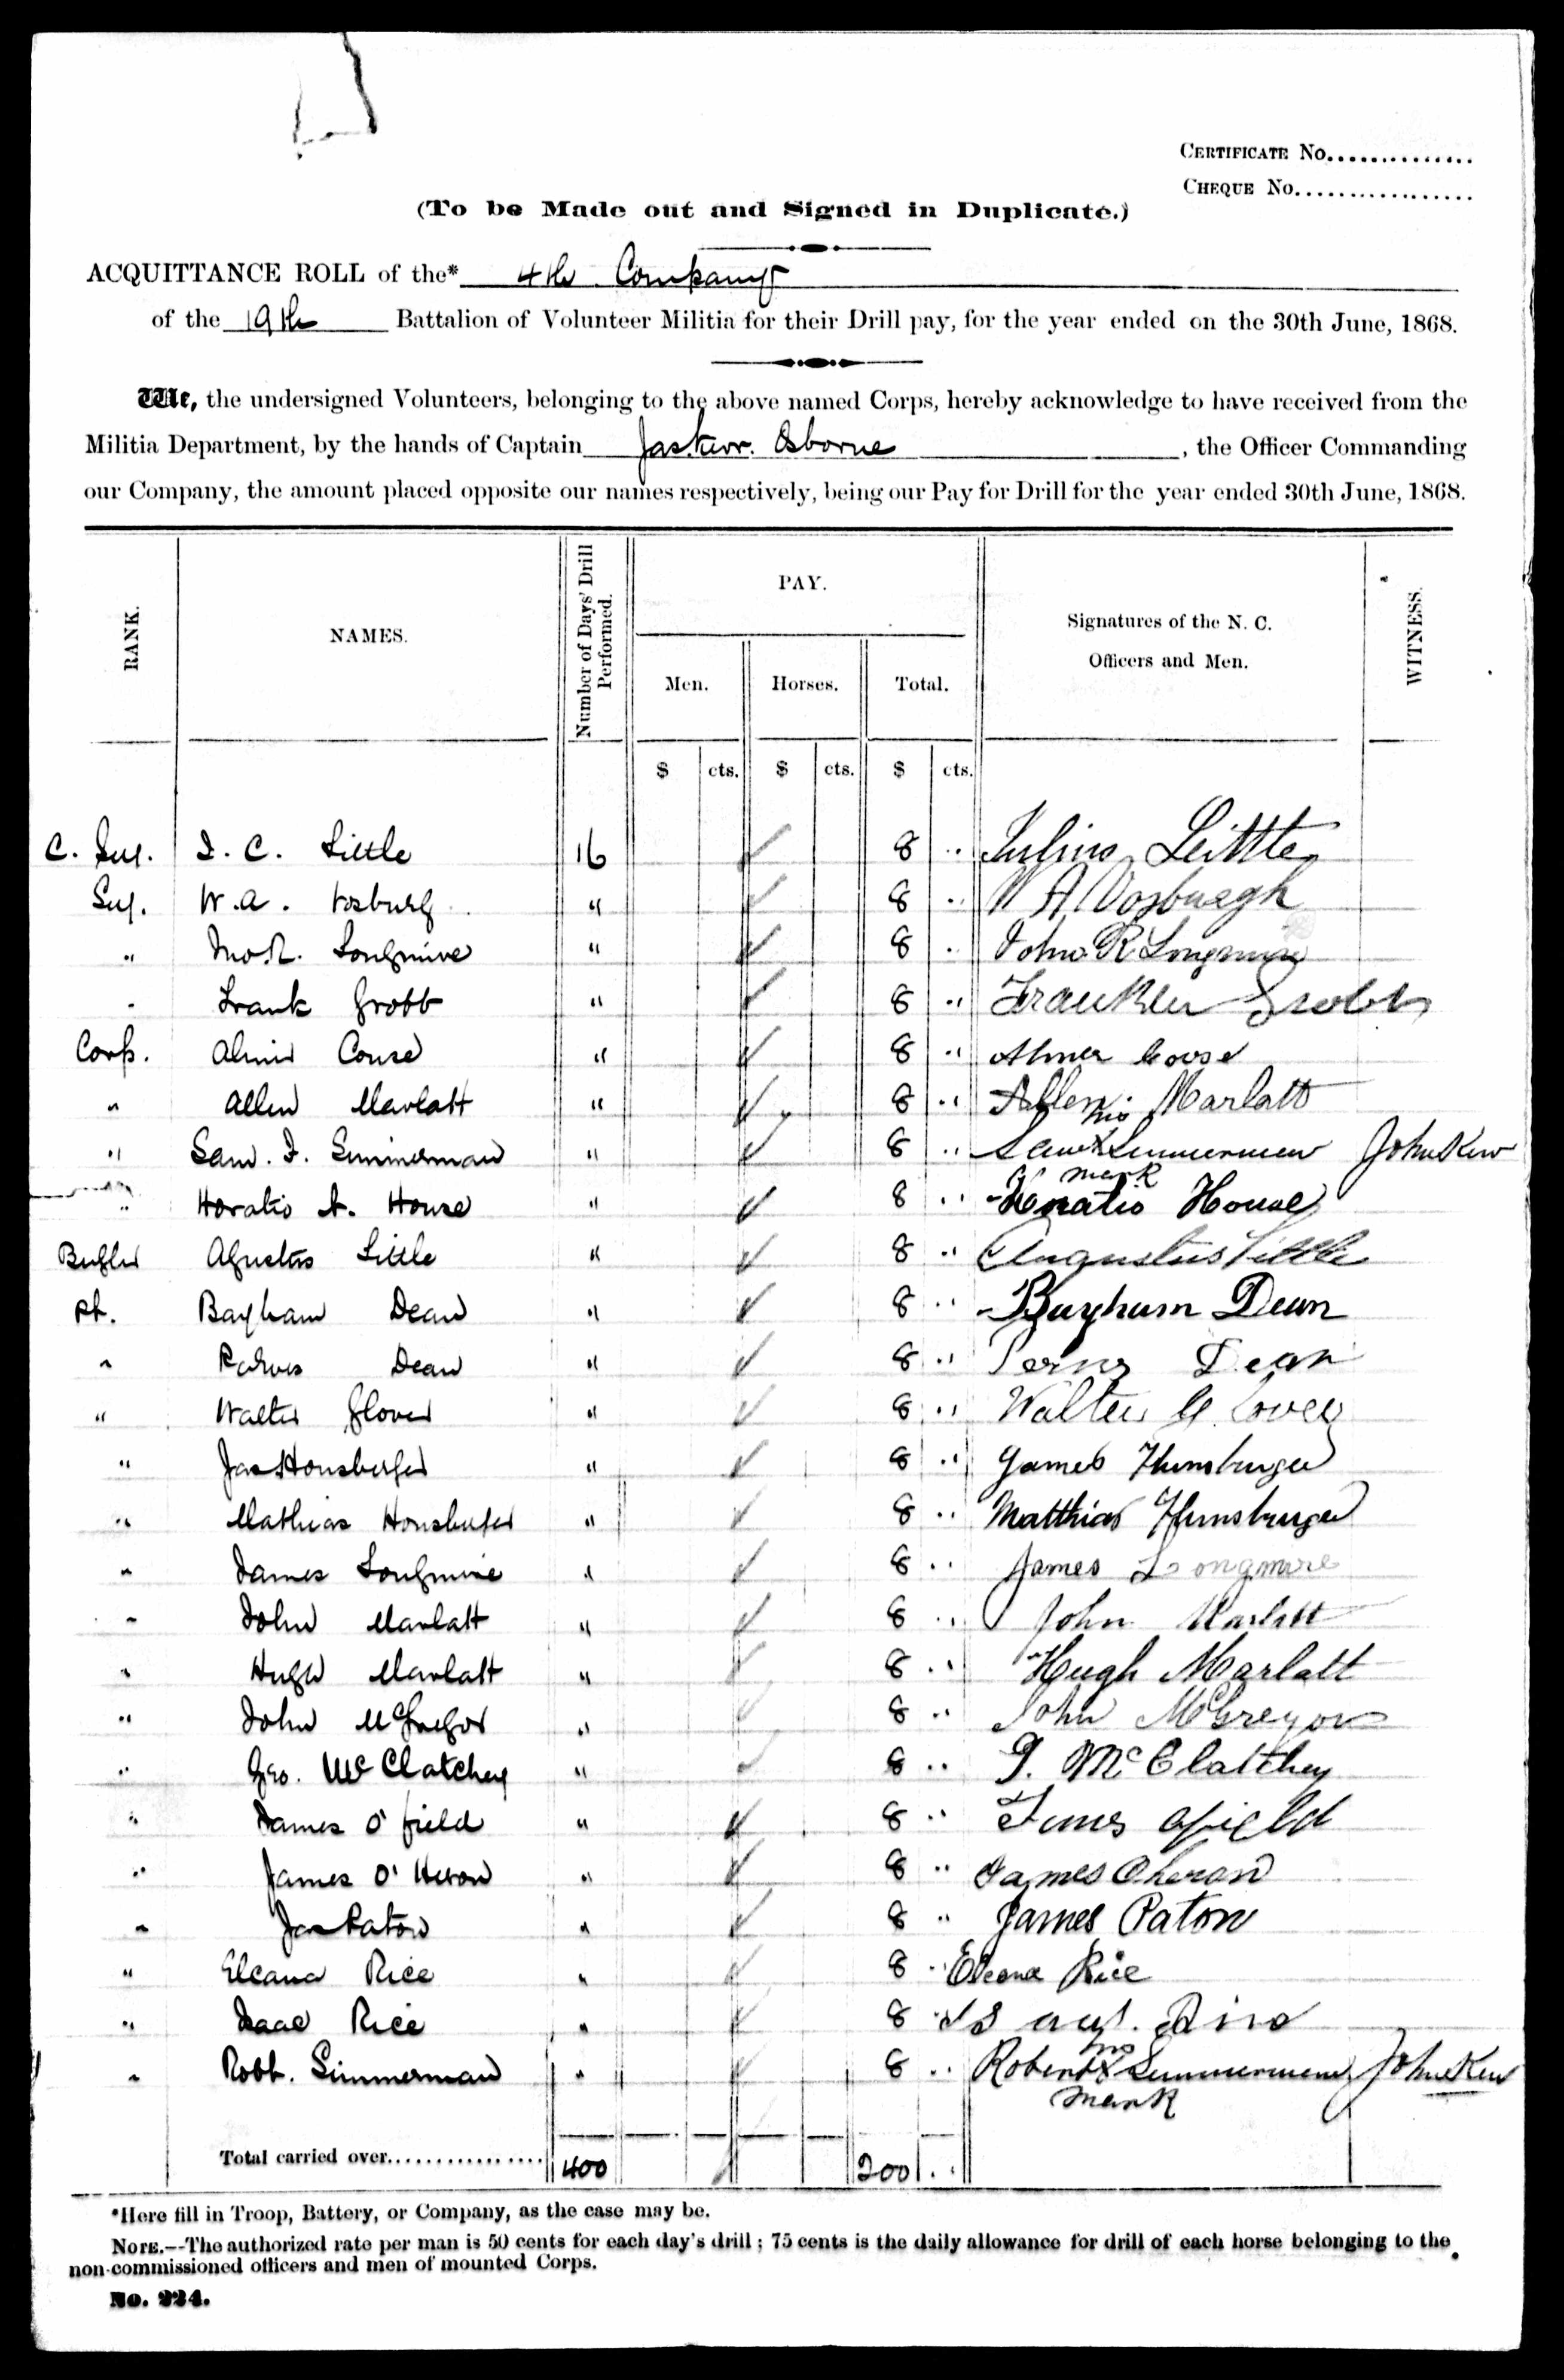 CERTIFICATE No...............
CHEQUE No..................
(To be Made out and Signed in Duplicate.)
ACQUITTANCE ROLL of the* 4th Company
of the 19th Battalion of Volunteer Militia for their Drill pay, for the year ended on the 30th June, 1868.
We, the undersigned Volunteers, belonging to the above named Corps, hereby acknowledge to have received from the
Militia Department, by the hands of Captain Osborne, the Officer Commanding
our Company, the amount placed opposite our names respectively, being our Pay for Drill for the year ended 30th June, 1868.
RANK. NAMES. Number of Days' Drill Performed. PAY. Signatures of the N. C. Officers and Men. WITNESS.
Men. Horses. Total.
$ cts. $ cts. $ cts.
C. Sey. I. C. Little 16 ✓ 8 .. Julius Little
Sey. W. A. Vosburg " ✓ 8 .. W A Vosburgh
" Jno. R. Longmire " ✓ 8 .. John R Longmire
" Frank Grobb " ✓ 8 .. Franklin Grobb
Corp. Couse " ✓ 8 .. Abner Couse
" Allen Marlatt " ✓ 8 .. Allen Marlatt
" Sam. F. Simmerman " ✓ 8 .. Sam his X mark Simmerman John Kew
" Horatio A. House " ✓ 8 .. Horatio House
Bugler Agustus Little " ✓ 8 .. Augustus Little
Pt. Bayham Dean " ✓ 8 .. Bayham Dean
" Dean " ✓ 8 .. Dean
" Walter Glover " ✓ 8 .. Walter Glover
" Jas Honsberger " ✓ 8 .. James Hunsburger
" Mathias Honsberger " ✓ 8 .. Matthias Hunsburger
" James Longmire " ✓ 8 .. James Longmire
" John Marlatt " ✓ 8 .. John Marlatt
" Hugh Marlatt " ✓ 8 .. Hugh Marlatt
" John McGregor " ✓ 8 .. John McGregor
" Geo. McClatchey " ✓ 8 .. G. McClatchey
" James O'field " ✓ 8 .. James Ofield
" James O'Heron " ✓ 8 .. James Oheron
" Jas Paton " ✓ 8 .. James Paton
" Elcana Rice " ✓ 8 .. Elcana Rice
" Isaac Rice " ✓ 8 ..
" Robt. Simmerman " ✓ 8 .. Robert his X mark Simmerman John Kew
Total carried over................ 400 200 ..
*Here fill in Troop, Battery, or Company, as the case may be.
NOTE.--The authorized rate per man is 50 cents for each day's drill; 75 cents is the daily allowance for drill of each horse belonging to the
non-commissioned officers and men of mounted Corps.
No. 224.